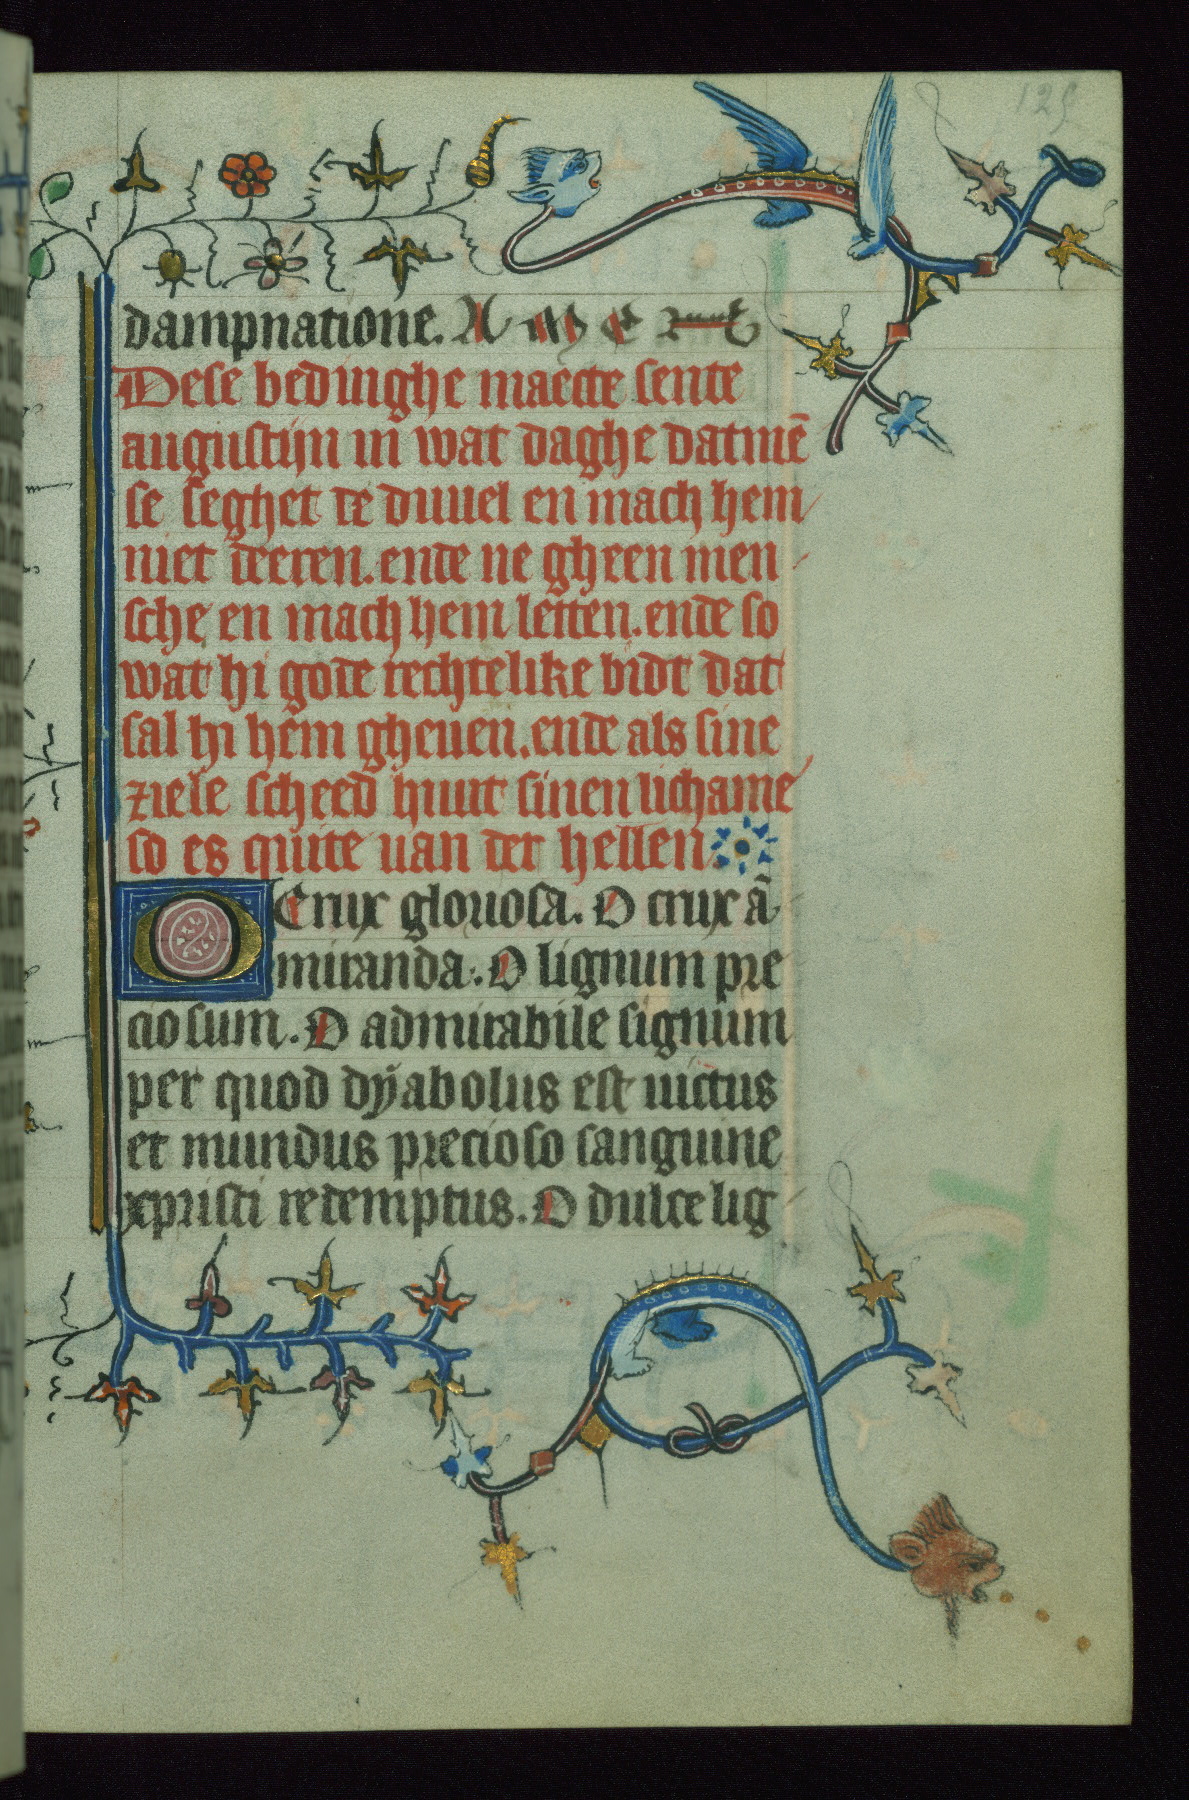 125
dampnatione. A M E N
Dese bedinghe maecte sente
augustijn in wat daghe datmē
se seghet de duuel en mach hem
niet deeren. ende ne gheen men
sche en mach hem letten. ende so
wat hi gode rechtelike bidt dat
sal hi hem gheuen. ende als sine
ziele scheed huut sinen lichame
so es quite uan der hellen.
O Crux gloriosa. O crux ad
miranda. O lignum pre
ciosum. O admirabile signum
per quod dyabolus est uictus
et mundus precioso sanguine
xpristi redemptus. O dulce lig